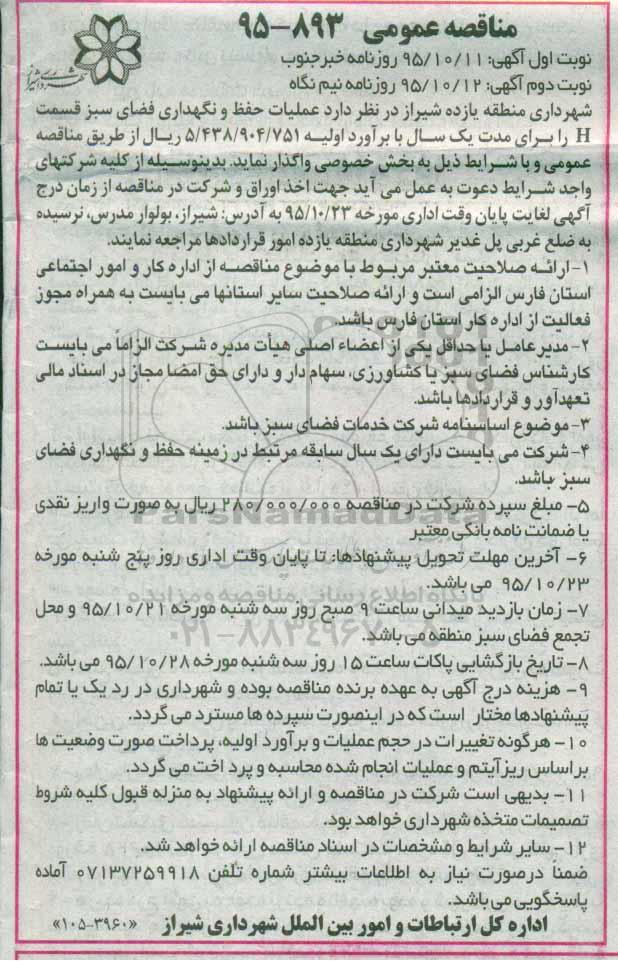 مناقصه عمومی ۸۹۳-۹۵
شهرداری شیراز
نوبت اول آگهی: ۹۵/۱۰/۱۱ روزنامه خبرجنوب
نوبت دوم آگهی: ۹۵/۱۰/۱۲ روزنامه نیم نگاه
شهرداری منطقه یازده شیراز در نظر دارد عملیات حفظ و نگهداری فضای سبز قسمت
H را برای مدت یک سال با برآورد اولیه ۵/۴۳۸/۹۰۴/۷۵۱ ریال از طریق مناقصه
عمومی و با شرایط ذیل به بخش خصوصی واگذار نماید. بدینوسیله از کلیه شرکتهای
واجد شرایط دعوت به عمل می آید جهت اخذ اوراق و شرکت در مناقصه از زمان درج
آگهی لغایت پایان وقت اداری مورخه ۹۵/۱۰/۲۳ به آدرس: شیراز، بولوار مدرس، نرسیده
به ضلع غربی پل غدیر شهرداری منطقه یازده امور قراردادها مراجعه نمایند.
۱- ارائه صلاحیت معتبر مربوط با موضوع مناقصه از اداره کار و امور اجتماعی
استان فارس الزامی است و ارائه صلاحیت سایر استانها می بایست به همراه مجوز
فعالیت از اداره کار استان فارس باشد.
۲- مدیرعامل یا حداقل یکی از اعضاء اصلی هیأت مدیره شرکت الزاماً می بایست
کارشناس فضای سبز یا کشاورزی، سهام دار و دارای حق امضا مجاز در اسناد مالی
تعهدآور و قراردادها باشد.
۳- موضوع اساسنامه شرکت خدمات فضای سبز باشد.
۴- شرکت می بایست دارای یک سال سابقه مرتبط در زمینه حفظ و نگهداری فضای
سبز باشد.
۵- مبلغ سپرده شرکت در مناقصه ۲۸۰/۰۰۰/۰۰۰ ریال به صورت واریز نقدی
یا ضمانت نامه بانکی معتبر
ParsNamadData
۶- آخرین مهلت تحویل پیشنهادها: تا پایان وقت اداری روز پنج شنبه مورخه
۹۵/۱۰/۲۳ می باشد.
پایگاه اطلاع رسانی مناقصه و مزایده
۷- زمان بازدید میدانی ساعت ۹ صبح روز سه شنبه مورخه ۹۵/۱۰/۲۱ و محل
تجمع فضای سبز منطقه می باشد.
۰۲۱-۸۸۳۴۹۶۷۰
۸- تاریخ بازگشایی پاکات ساعت ۱۵ روز سه شنبه مورخه ۹۵/۱۰/۲۸ می باشد.
۹- هزینه درج آگهی به عهده برنده مناقصه بوده و شهرداری در رد یک یا تمام
پیشنهادها مختار است که در اینصورت سپرده ها مسترد می گردد.
۱۰- هرگونه تغییرات در حجم عملیات و برآورد اولیه، پرداخت صورت وضعیت ها
براساس ریزآیتم و عملیات انجام شده محاسبه و پرد اخت می گردد.
۱۱- بدیهی است شرکت در مناقصه و ارائه پیشنهاد به منزله قبول کلیه شروط
تصمیمات متخذه شهرداری خواهد بود.
۱۲- سایر شرایط و مشخصات در اسناد مناقصه ارائه خواهد شد.
ضمناً درصورت نیاز به اطلاعات بیشتر شماره تلفن ۰۷۱۳۷۲۵۹۹۱۸ آماده
پاسخگویی می باشد.
اداره کل ارتباطات و امور بین الملل شهرداری شیراز «۳۹۶۰-۱۰۵»